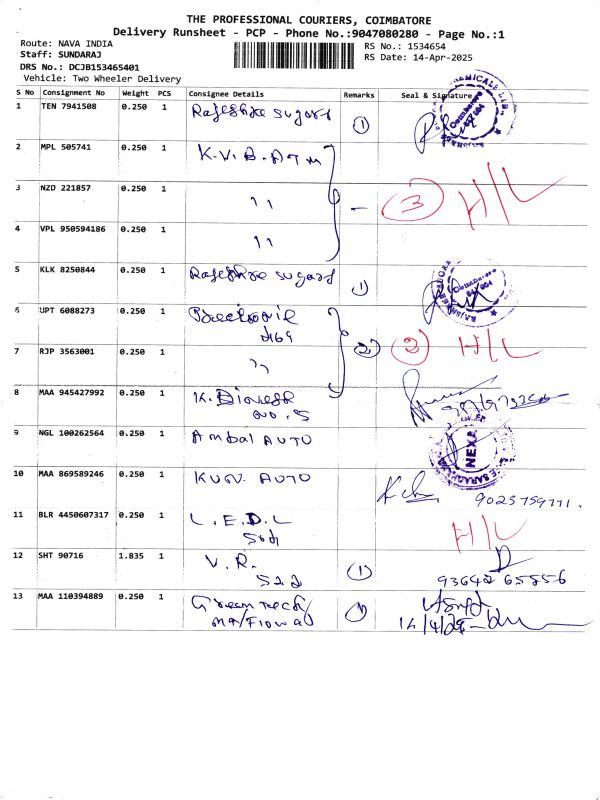 THE PROFESSIONAL COURIERS, COIMBATORE
Delivery Runsheet - PCP - Phone No.:9047080280 - Page No.:1
Route: NAVA INDIA
Staff: SUNDARAJ
RS No.: 1534654
DRS No.: DCJB153465401
RS Date: 14-Apr-2025
Vehicle: Two Wheeler Delivery
S No Consignment No Weight PCS Consignee Details Remarks Seal & Signature
1 TEN 7941508 0.250 1 Rajeshree sugars 1
2 MPL 505741 0.250 1 K.V.B. ATM
3 NZD 221857 0.250 1 ıı — 3 H/L
4 VPL 950594186 0.250 1 ıı
5 KLK 8250844 0.250 1 Rajeshree sugars 1
6 UPT 6088273 0.250 1
7 RJP 3563001 0.250 1 ıı 2 2 H/L
8 MAA 945427992 0.250 1 K. Dinesh
9 NGL 100262564 0.250 1 Ambal AUTO NEXA
10 MAA 869589246 0.250 1 KUN. AUTO
9023759771.
11 BLR 4450607317 0.250 1 L.E.D.L H/L
12 SHT 90716 1.835 1 V.R. 1
93642 65556
13 MAA 110394889 0.250 1 Green tech 1
14/4/25